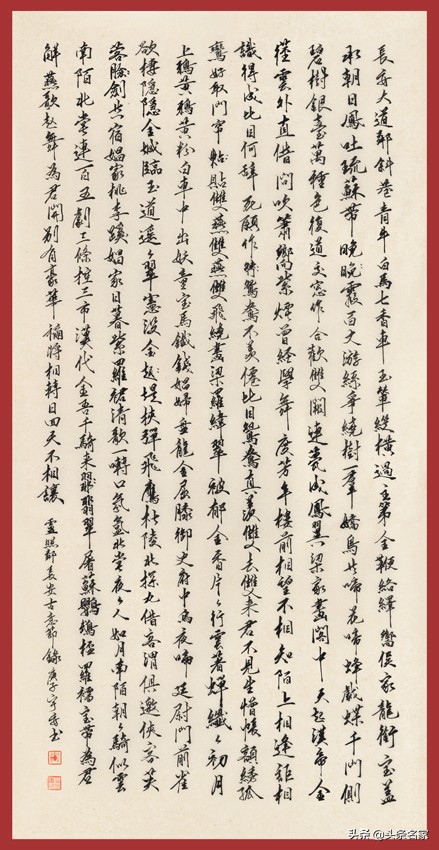 長安大道鄰斜巷青牛白馬七香車玉輦縱橫過主第金鞭絡繹嚮侯家龍銜寶蓋
承朝日鳳吐琉蘇帶晚晚霞百丈游絲爭繞樹一羣嬌鳥共啼花啼花戲蝶千門側
碧樹銀臺萬種色復道交窓作合歡雙闕連甍成鳳翼梁家畫閣中天起漢帝金
莖雲外直借問吹簫嚮紫煙曾經學舞度芳年樓前相望不相知陌上相逢詎相
識得成比目何辭死願作鴛鴦不羨僊比目鴛鴦真羨雙去雙來君不見生憎帳額綉孤
鸞好取門帘帖貼雙燕雙燕雙飛繞畫梁羅緯翠被郁金香片々行雲著蟬纖々初月
上鴉黃鴉黃粉白車中出妖童寶馬鐵娼婦盤龍金屈膝御史府中烏夜啼廷尉門前雀
欲棲隱隱金城臨玉道遙々翠幰沒金堤挾彈飛鷹杜陵北探丸借客渭俱邀俠客芙
蓉臉劍共宿娼家桃李蹊娼家日暮紫羅裙清歌一囀口氛氳北堂夜々人如月南陌朝々騎似雲
南陌北堂連百五劇三條控三市漢代金吾千騎來翡翠屠蘇鸚鵡杯羅襦寶帶為君
解燕歌趙舞為君開別有豪華稱將相轉日回天不相讓 盧照鄰長安古意節錄庚子宇秀書
头条 @头条名家